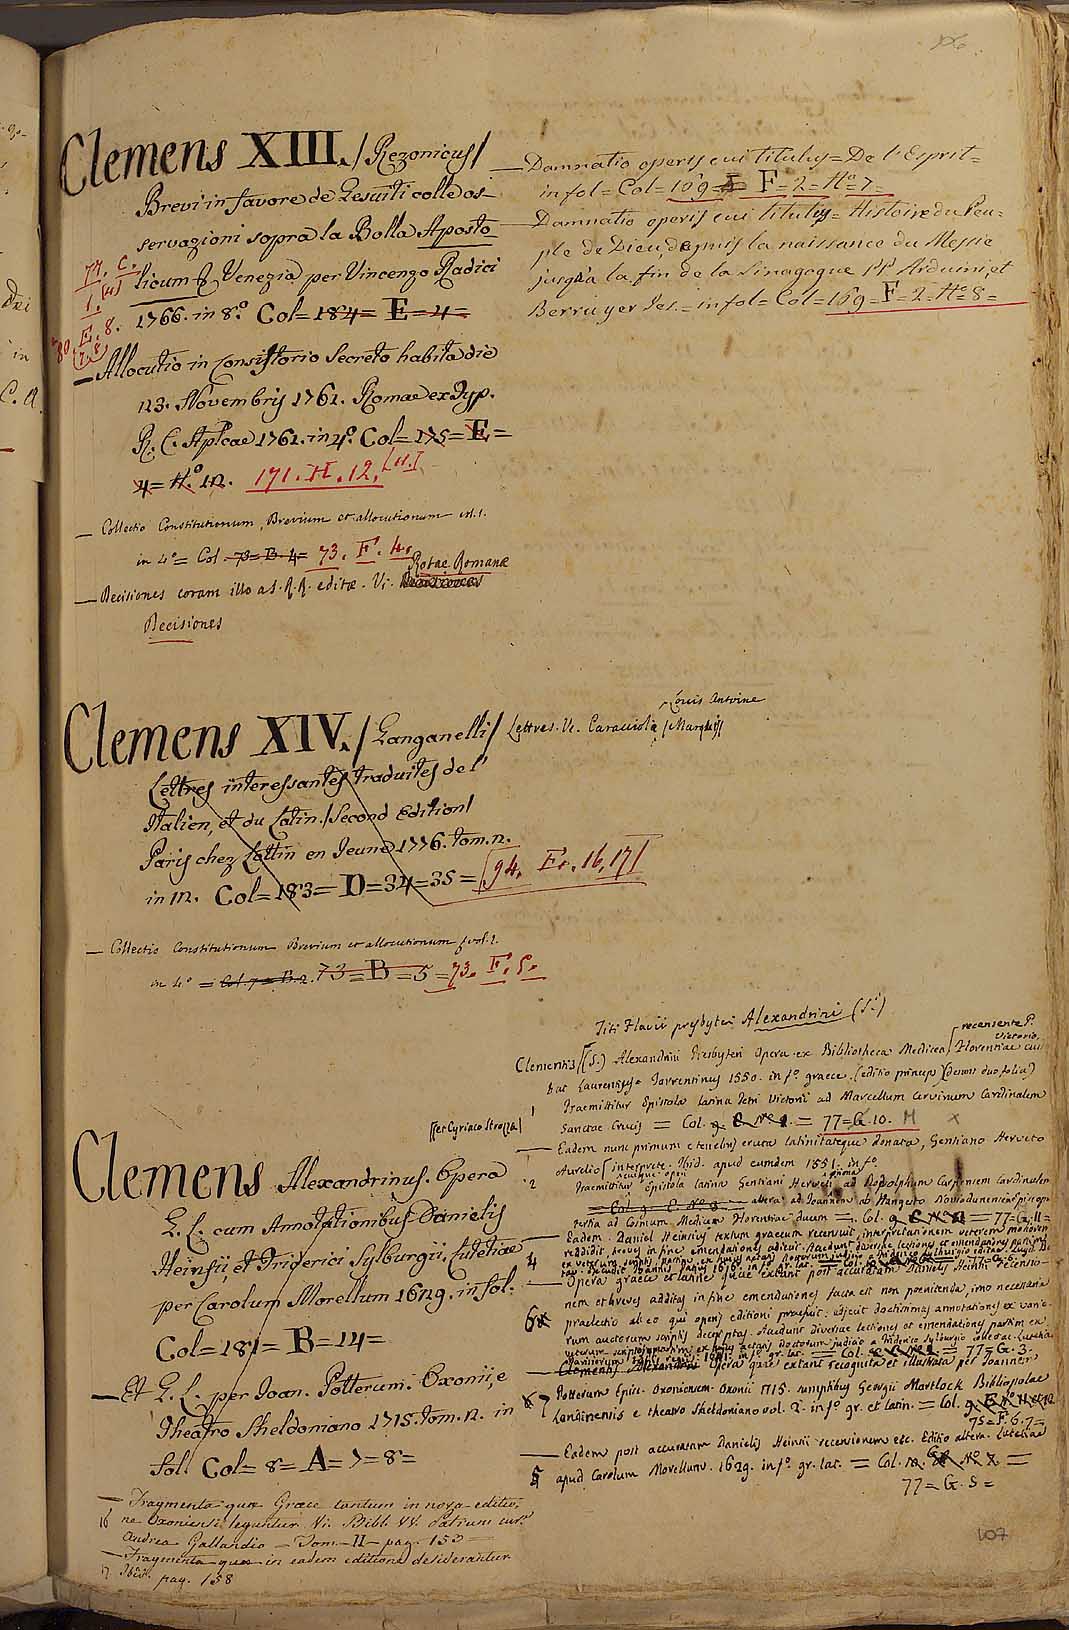 106
Clemens XIII. /Rezonicus/
Brevi in favore de Gesuiti colle os-
servazioni sopra la Bolla Aposto
licum & Venezia per Vincenzo Radici
1766. in 8.º Col=184= E=4=
77. C.
1. (4)
E. 8.
—Allocutio in Consistorio Secreto habita die
23. Novembris 1762. Romae ex Typ.
R. C. Aplcae 1762. in 4º. Col=175=E=
4=Nº. 12. 171. H. 12. [11.]
— Collectio Constitutionum, Brevium et allocutionum vol. 1.
in 4º= Col 73=B. 4= 73. F. 4.
—Decisiones coram illo a S. R. R. editæ. Vi. Rotae Romanæ
Decisiones
— Damnatio operis cui titulus=De l'Esprit=
in fol=Col=169= F=2=Nº=7=
— Damnatio operis cui titulus= Histoire du Peu=
ple de Dieu, depuis la naissance du Messie
jusqu'a la fin de la Sinagogue PP Arduini, et
Berruyer Jes.=in fol=Col=169=F=2=Nº=8=
Clemens XIV. /Ganganelli/ Lettres. Vi. Caracciola /Marquis/
Louis Antoine
Lettres interessantes traduites de l'
Italien, et du Latin. /Second Edition/
Paris chez Lottin en Jeune 1776. tom. 2.
in 12. Col=183=D=34=35= [94. E. 16, 17]
— Collectio Constitutionum Brevium et allocutionum vol. 1.
in 4º = Col. 7=B. 2. 73=B=5=73. F. 5.
[et Cyriaco Strozza]
Clemens Alexandrinus. Opera
G. L. cum Annotationibus Danielis
Heinsii et Friderici Sylburgii, Lutetiae
per Carolum Morellum 1629. in fol:
Col=181=B=14=
—Et G. L. per Joan. Potterum. Oxonii, e
Theatro Sheldoniano 1715. tom. 2. in
foll Col=8=A=7=8=
— Fragmenta quæ Græce tantum in nova editio,
16 ne Oxoniensi leguntur Vi. Bibl. VV. Patrum cur.
Andrea Gallandio — Tom—II— pag. 153 —
— Fragmenta quæ in eadem editione desiderantur
17 Ibid. pag. 158
Titi Flavii presbyteri Alexandrini (S.i)
Clementis (S.) Alexandrini Presbyteri Opera ex Bibliotheca Medicea [recensente P. Victorio,] Florentiae cud
bat Laurentius Torrentinus 1550. in fº graece. (editio princeps) (desunt duo folia)
1 Praemittitur Epistola latina Petri Victorii ad Marcellum Cervinum Cardinalem
Sanctae Crucis = Col. 9. E Nº 9. = 77=G. 10. M x
— Eadem nunc primum e tenebris eruta latinitateque donata, Gentiano Herveto
Aurelio interprete. Ibid. apud eumdem 1551. in fº.
2 Praemittitur Epistola latina Gentiani Herveti prima ad Rodolphum Carpensem Cardinalem
altera ad Joannem ab Hangesto Noviodunensem Episcopum
tertia ad Cosmum Medicem Florentiae ducem =. Col. 9 E Nº = 77=G. 11=
— Eadem. Daniel Heinsius textum graecum recensuit, interpretationem veterem
4 reddidit, breves in fine emendationes adiecit.
— Opera graece et latine quae extant post accuratam Danielis Heinsii recensio-
nem et breves additas in fine emendationes facta est non poenitenda, imo necessaria
6 praelectio ab eo qui operis editioni praefuit: adjecit doctissimas annotationes ex vario-
rum auctorum scriptis decerptas. Accedunt diversae lectiones et emendationes partim ex
veterum scriptis, partim ex hujus aetatis doctorum judicio a Friderico Sylburgio collectae. Lutetiae
Parisiorum 1641. in fº gr. lat. = Col. = 77=G. 3.
— Clementis Alexandrini Opera quae extant recognita et illustrata per Joannem
7 Potterum Episc. Oxoniensem. Oxonii 1715. sumptibus Georgii Mortlock Bibliopolae
Londinensis e theatro Sheldoniano vol. 2. in fº gr. et latin. = Col. 9.
75=F. 6. 7=
— Eadem post accuratam Danielis Heinsii recensionem etc. Editio altera. Lutetiae
5 apud Carolum Morellum. 1629. in fº. gr. lat. = Col. 10. Nº 7. =
77=G. 5=
107